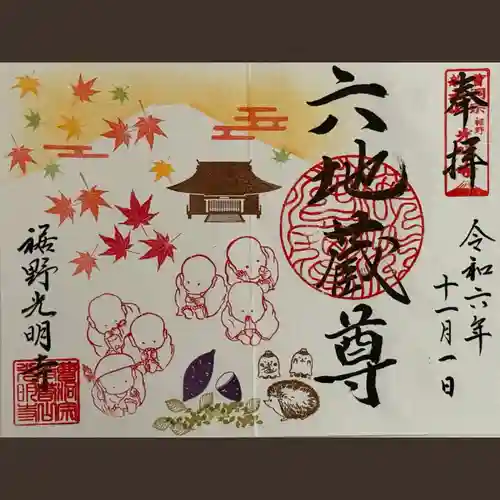 奉拝
令和六年
十一月一日
六地蔵尊
裾野光明寺